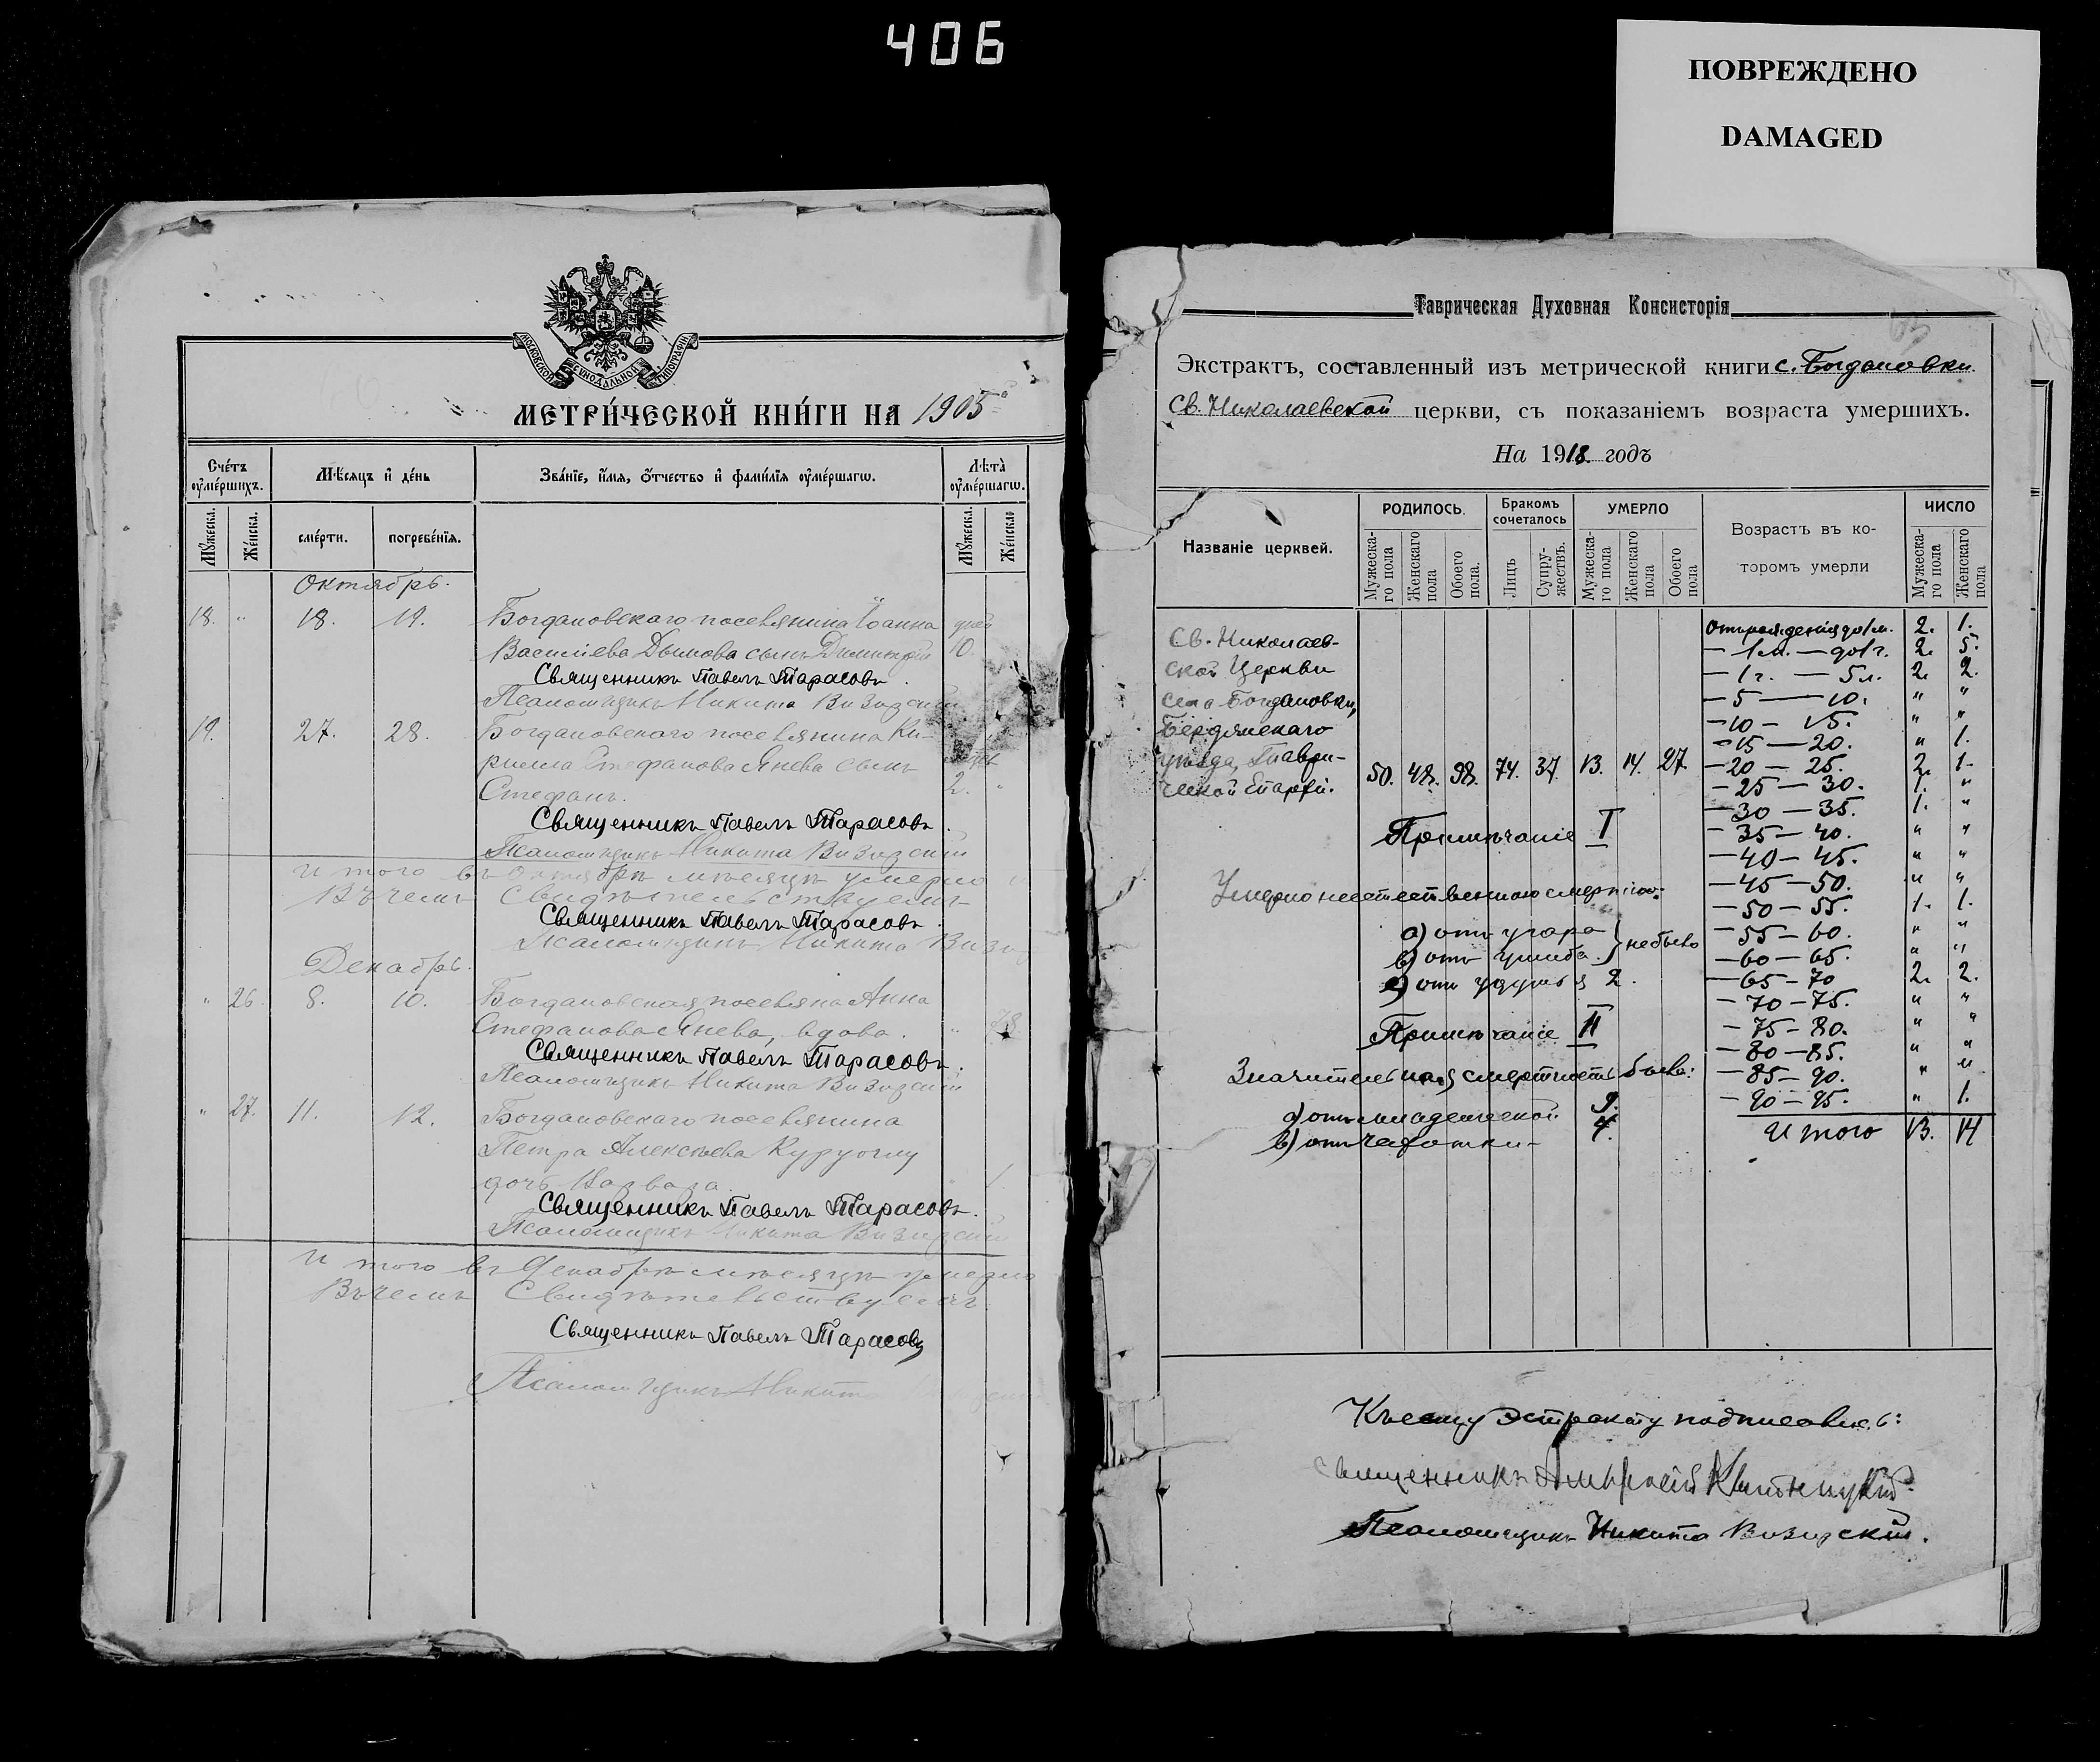 406
ПОВРЕЖДЕНО
DAMAGED
МОСКОВСКОЙ СѴНОДАЛЬНОЙ ТИПОГРАФІИ
МЕТРИ́ЧЕСКОЙ КНИ́ГИ НА 1905
Сче́тъ оу҆ме́ршихъ.
Мѣ́сяцъ и҆ де́нь
Зва́нїе, и҆́мя, ѻ҆́тчество и҆ фами́лїя оу҆ме́ршагѡ.
Лѣ́та̀ оу҆ме́ршагѡ.
Мꙋ́жеска.
Же́нска.
сме́рти.
погребе́нїя.
Мꙋ́жеска.
Же́нска
Октябрь.
18. " 18. 19. Богдановскаго поселянина Іоанна дней
Василіева Дымова сынъ Димитрій 10.
Священникъ Павелъ Тарасовъ.
Псаломщикъ Никита Визирскій
19. 27. 28. Богдановскаго поселянина Ки-
рилла Стефанова Янева сынъ
Стефанъ. 2. "
Священникъ Павелъ Тарасовъ.
Псаломщикъ Никита Визирскій
Итого въ Октябрѣ мѣсяцѣ умерло
Въ чемъ Свидѣтельствуемъ
Священникъ Павелъ Тарасовъ.
Псаломщикъ Никита Визир
Декабрь.
" 26. 8. 10. Богдановская поселянка Анна
Стефанова Янева, вдова. " 78
Священникъ Павелъ Тарасовъ.
Псаломщикъ Никита Визирскій
" 27. 11. 12. Богдановскаго поселянина
Петра Алексѣева Куруоглу
дочь Варвара. 1
Священникъ Павелъ Тарасовъ.
Псаломщикъ Никита Визирскій
Итого въ Декабрѣ мѣсяцѣ умерло
Въ чемъ Свидѣтельствуемъ.
Священникъ Павелъ Тарасовъ
Псаломщикъ Никита
Таврическая Духовная Консисторія
Экстрактъ, составленный изъ метрической книги с. Богдановки
Св. Николаевской церкви, съ показаніемъ возраста умершихъ.
На 1918. годъ
Названіе церквей.
РОДИЛОСЬ.
Мужеска-го пола
Женскаго пола
Обоего пола.
Бракомъ сочеталось
Лицъ
Супру-жествъ.
УМЕРЛО
Мужеска-го пола
Женскаго пола
Обоего пола
Возрастъ въ ко-
торомъ умерли
ЧИСЛО
Мужеска-го пола
Женскаго пола
Св. Николаев-
ской Церкви
села Богдановки,
Бердянскаго
уѣзда, Таври-
ческой Епархіи.
50. 48. 98. 74. 37. 13. 14. 27
От рожденія до 1 м. 2. 1.
— 1 м. — до 1 г. 2. 5.
— 1 г. — 5 л. 2. 2.
— 5 — 10. " "
— 10 — 15. " "
— 15 — 20. " 1.
— 20 — 25. 2. 1.
— 25 — 30. 1. "
— 30 — 35. 1. "
— 35 — 40. " "
— 40 — 45. " "
— 45 — 50. " "
— 50 — 55. 1. 1.
— 55 — 60. " "
— 60 — 65. " "
— 65 — 70 2. 2.
— 70 — 75. " "
— 75 — 80. " "
— 80 — 85. " "
— 85 — 90. " "
— 90 — 95. " 1.
Итого 13. 14
Примѣчаніе I
Умерло неестественною смертію:
а) отъ угара
в) отъ ушиба. } не было
с) отъ удушья 2.
Примѣчаніе II
Значительная смертность была:
а) отъ младенческой 9.
в) отъ чахотки — 4.
Къ сему эстракту подписались:
Священникъ
Псаломщикъ Никита Визирскій.